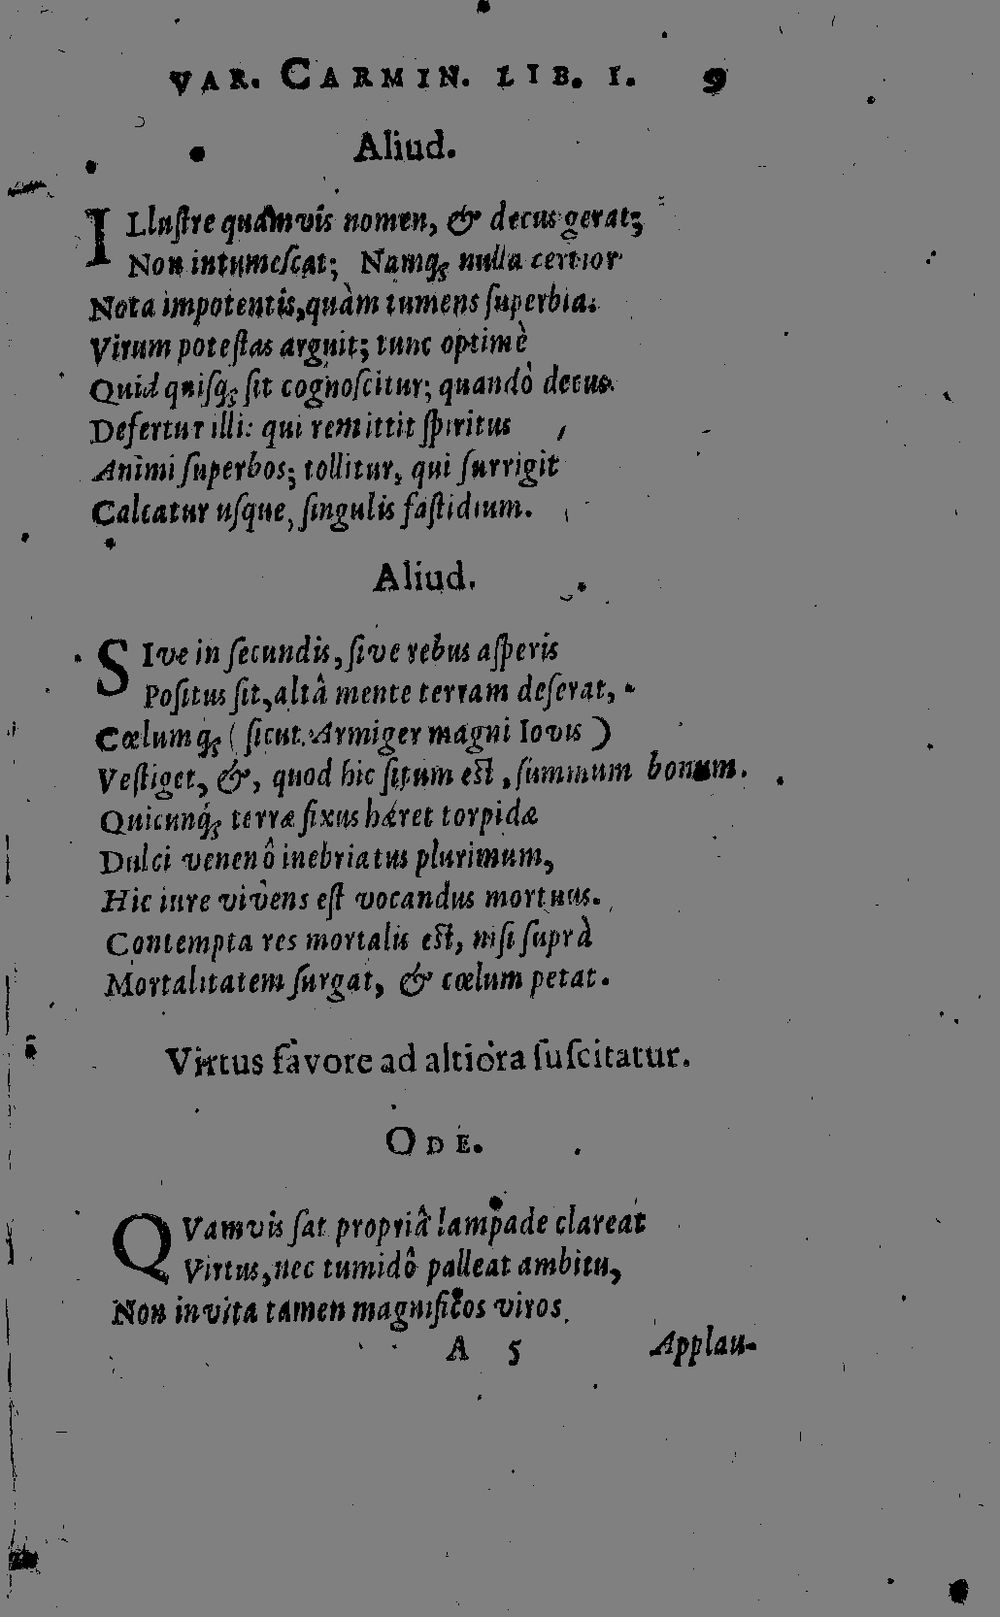 VAR. CARMIN. LIB. I. 9
Aliud.
ILluſtre quamvis nomen, & decus gerat;
Non intumeſcat; Namq; nulla certior
Nota impotentis, quàm tumens ſuperbia.
Virum poteſtas arguit; tunc optimè
Quid quiſq; ſit cognoſcitur; quandò decus
Defertur illi: qui remittit ſpiritus
Animi ſuperbos; tollitur, qui ſurrigit
Calcatur uſque, ſingulis faſtidium.
Aliud.
SIve in ſecundis, ſive rebus aſperis
Poſitus ſit, altâ mente terram deſerat,
Cœlumq; (ſicut Armiger magni Iovis)
Veſtiget, &, quod hic ſitum eſt, ſummum bonum.
Quicunq́; terræ fixus hæret torpidæ
Dulci venenô inebriatus plurimum,
Hic iure vivens eſt vocandus mortuus.
Contempta res mortalis eſt, niſi ſuprà
Mortalitatem ſurgat, & cœlum petat.
Virtus favore ad altiora ſuſcitatur.
ODE.
QVamvis ſat propriâ lampade clareat
Virtus, nec tumidô palleat ambitu,
Non invita tamen magnificos viros
A 5 Applau-